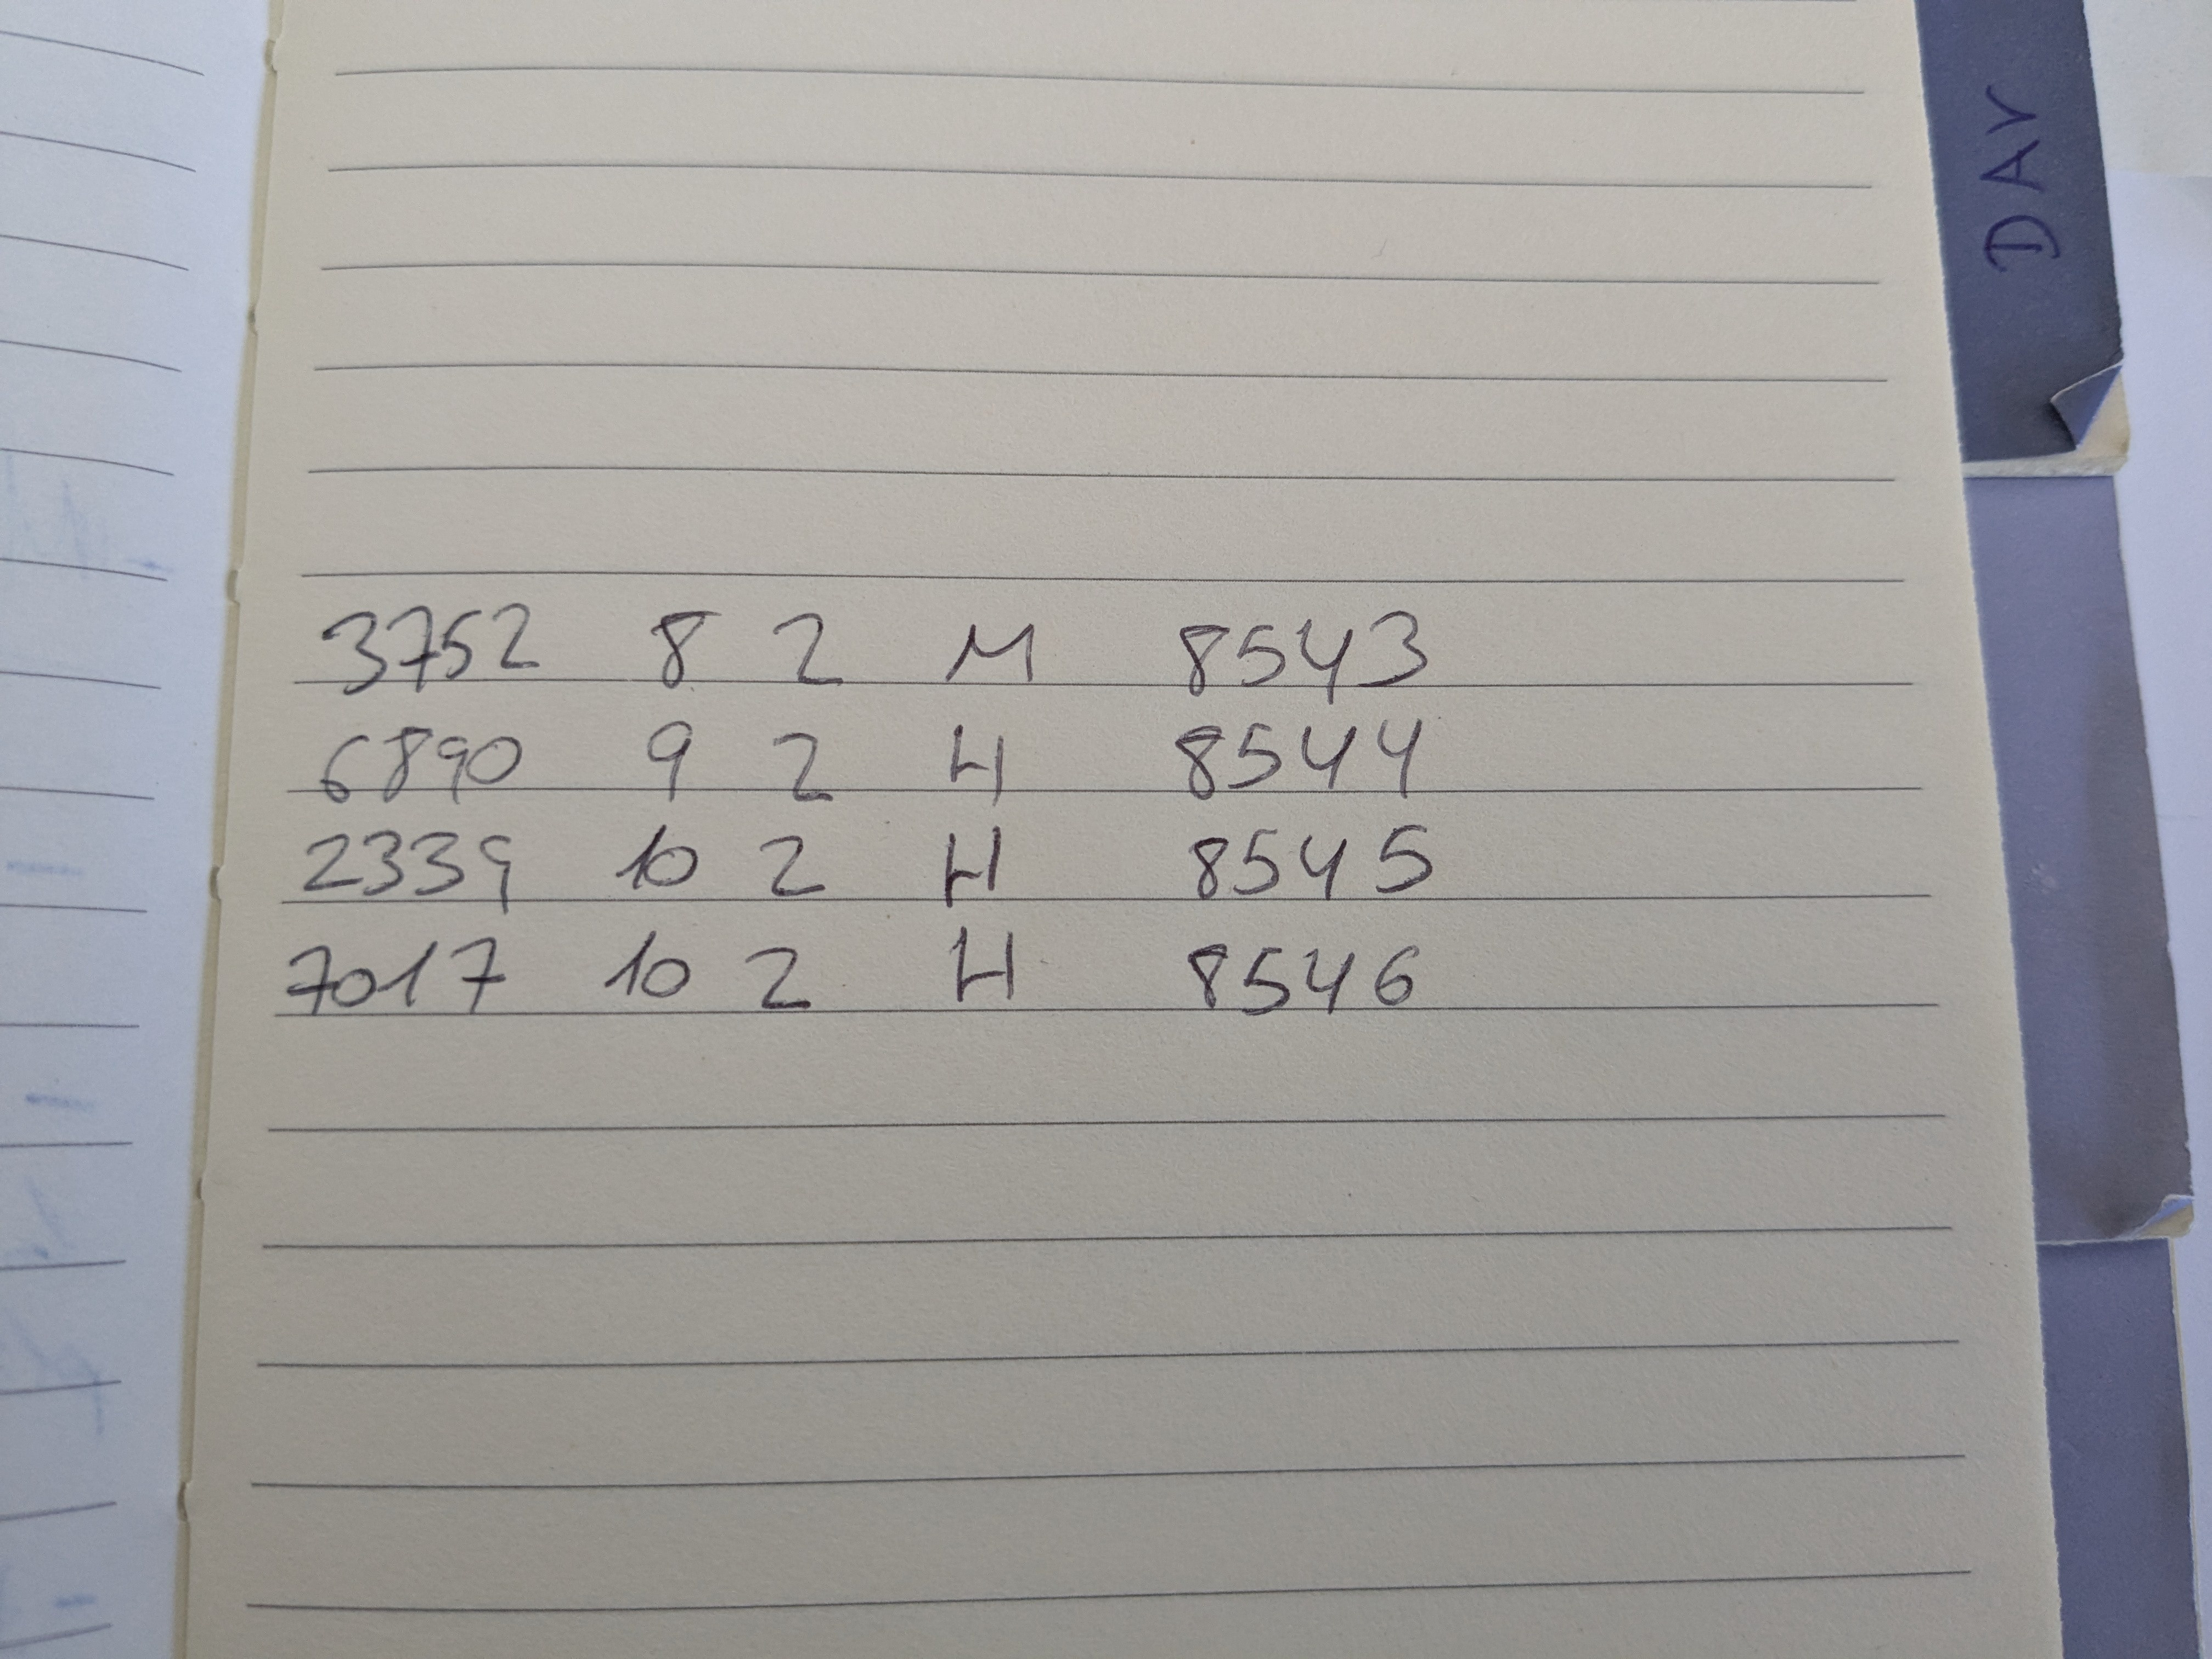 3752 8 2 M 8543
6890 9 2 H 8544
2339 10 2 H 8545
7017 10 2 H 8546
DAV